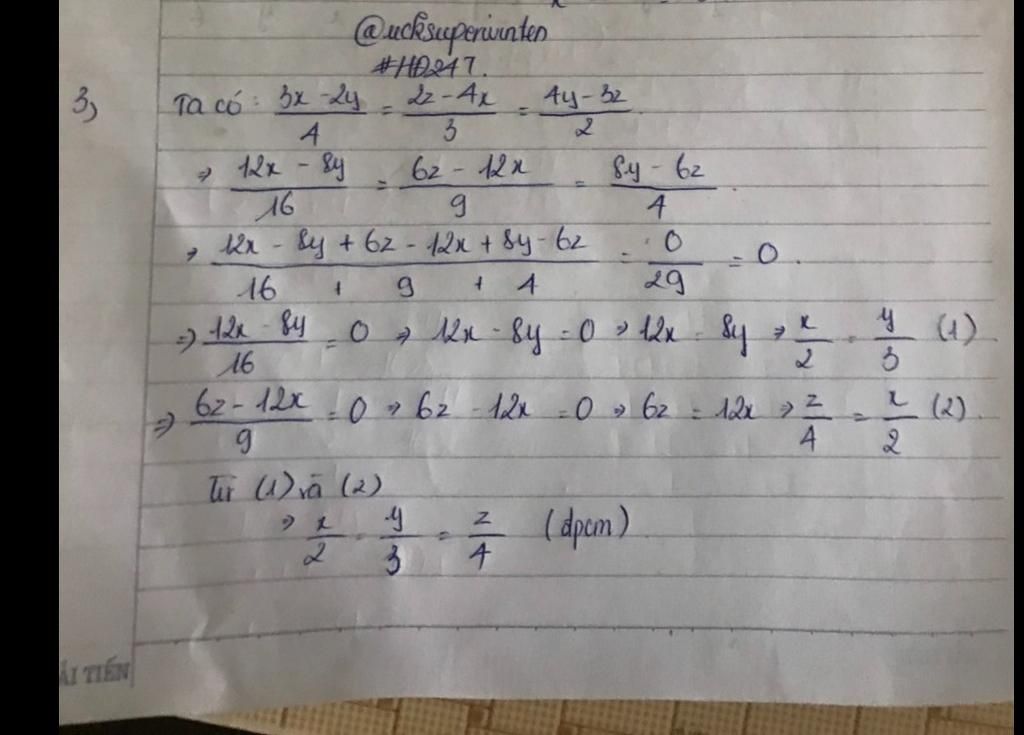 @ucksuperwinten
#HĐ247.
3, Ta có: (3x - 2y)/4 = (2z - 4x)/3 = (4y - 3z)/2
⇒ (12x - 8y)/16 = (6z - 12x)/9 = (8y - 6z)/4.
⇒ (12x - 8y + 6z - 12x + 8y - 6z)/(16 + 9 + 4) = 0/29 = 0.
⇒ (12x - 8y)/16 = 0 ⇒ 12x - 8y = 0 ⇒ 12x = 8y ⇒ x/2 = y/3 (1)
⇒ (6z - 12x)/9 = 0 ⇒ 6z - 12x = 0 ⇒ 6z = 12x ⇒ z/4 = x/2 (2).
Từ (1) và (2)
⇒ x/2 = y/3 = z/4 (dpcm)
ẢI TIẾN